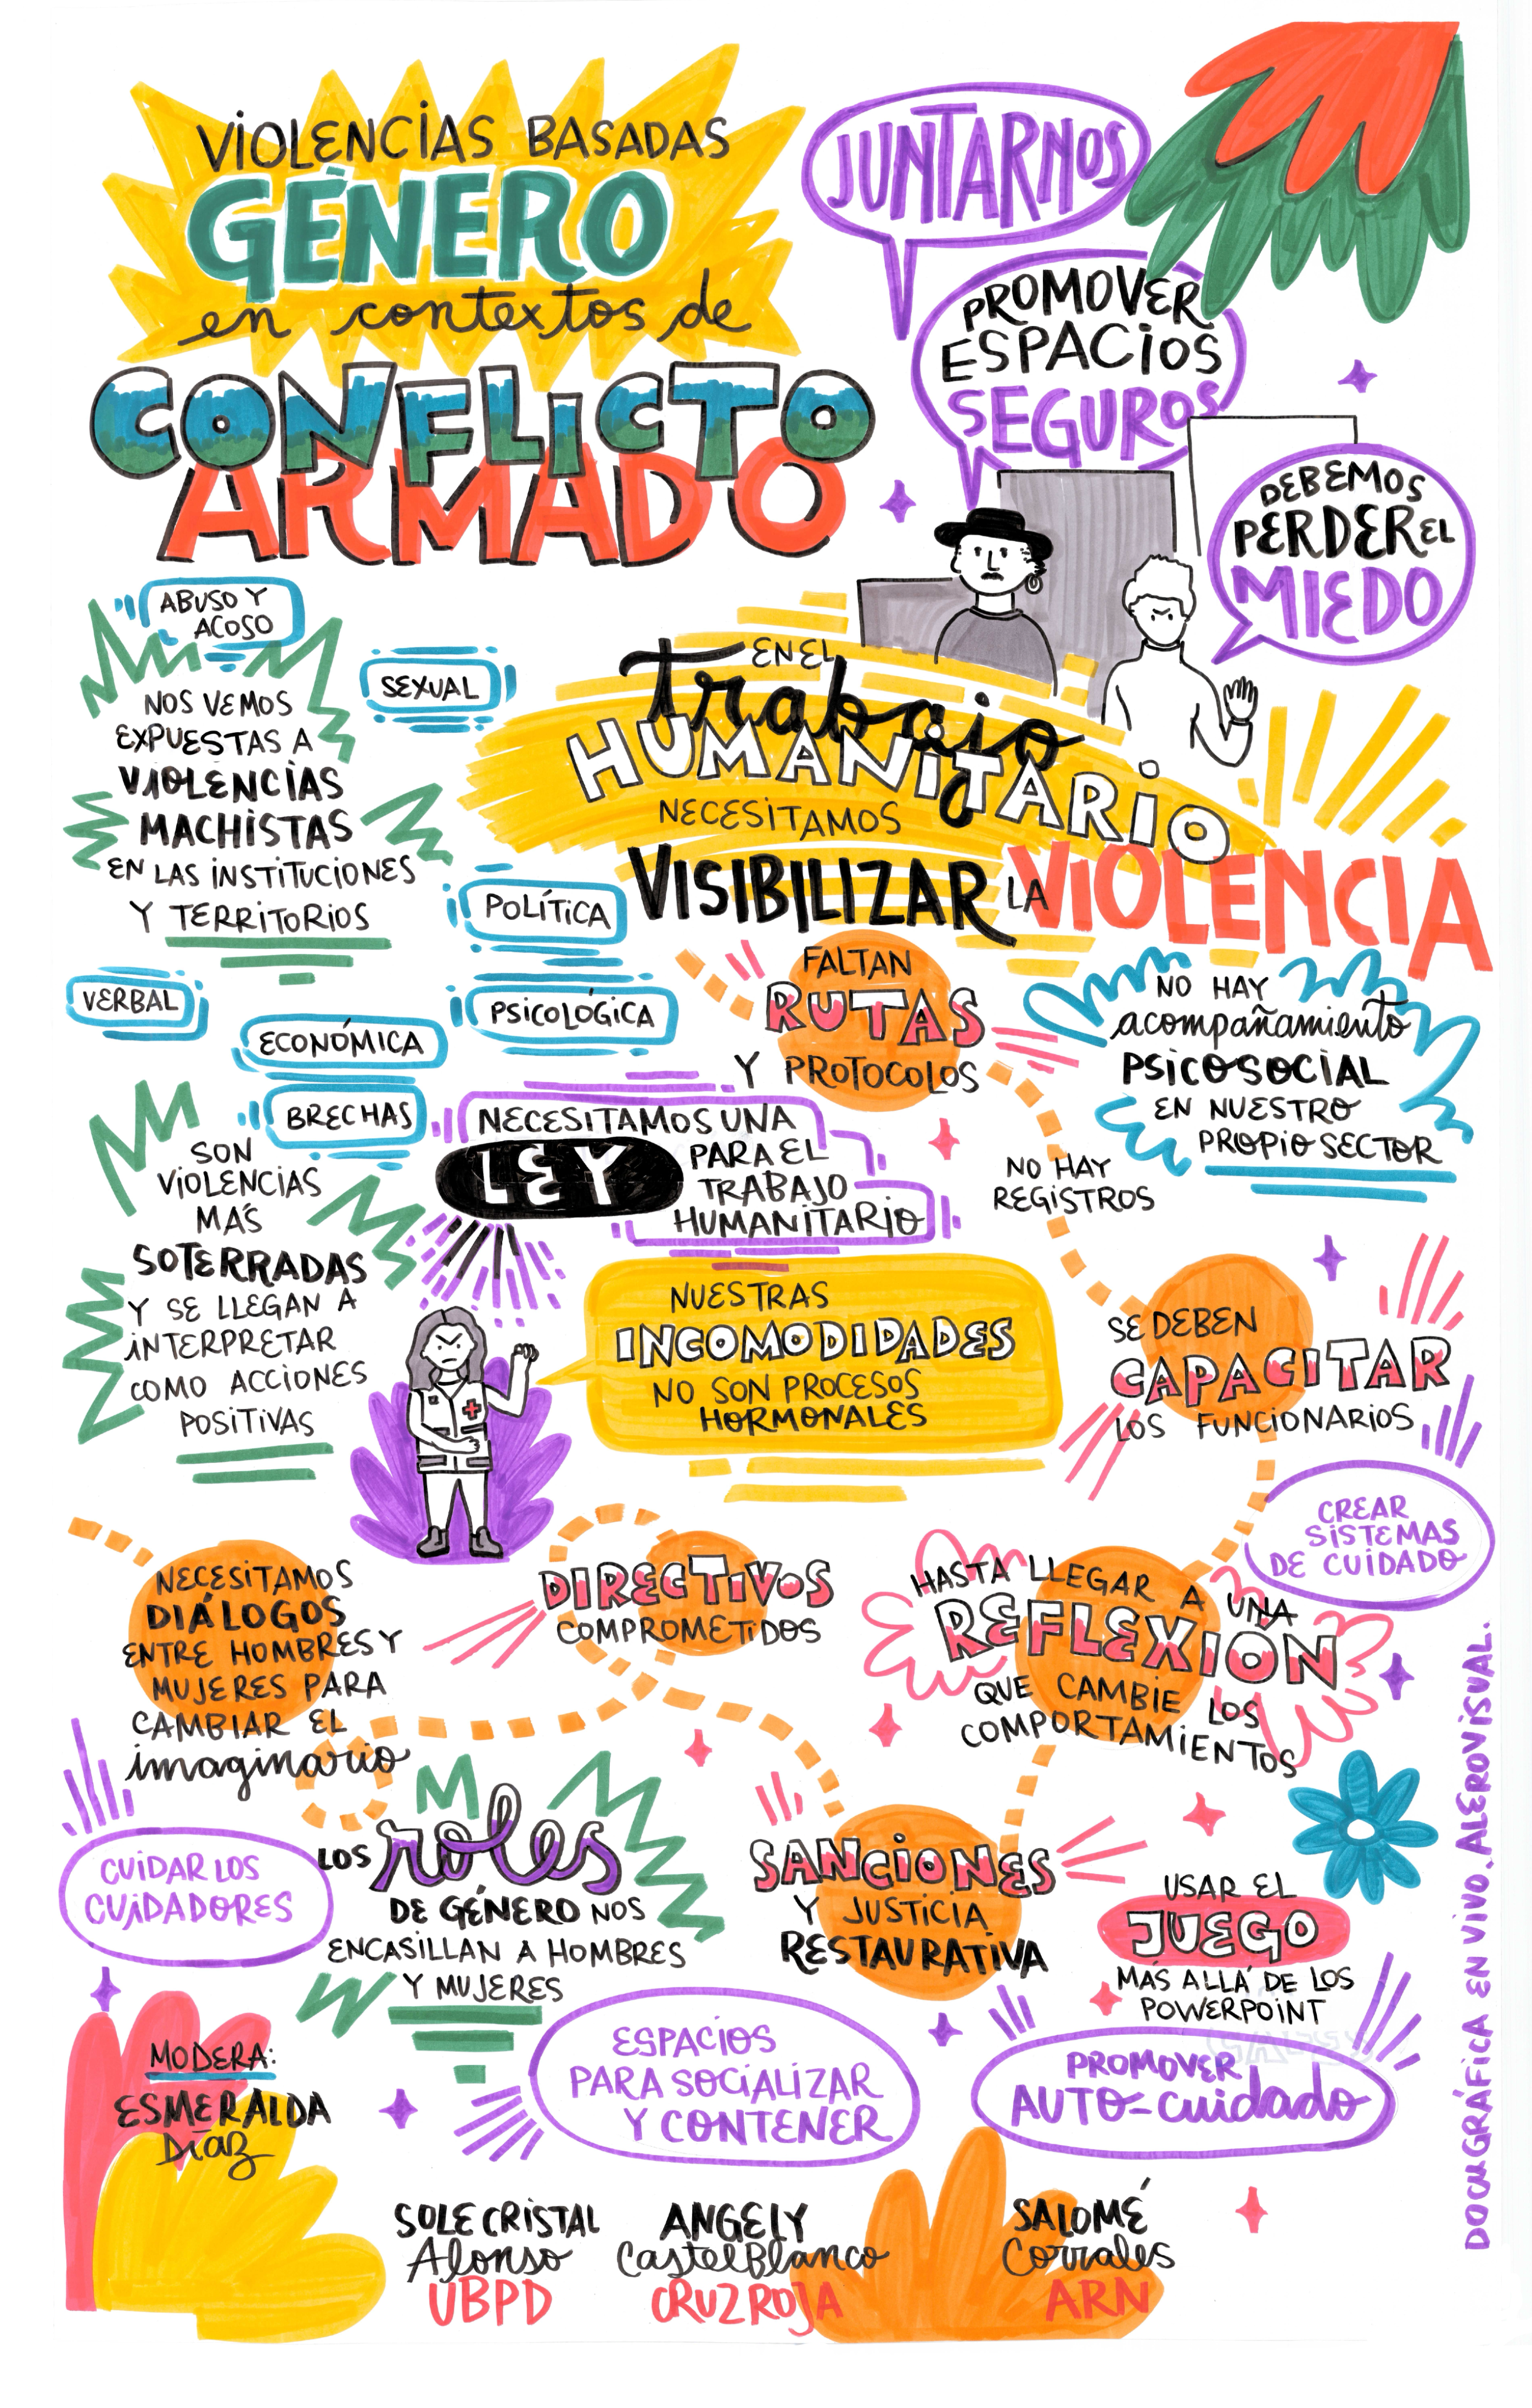 VIOLENCIAS BASADAS
GÉNERO
en contextos de
CONFLICTO
ARMADO
JUNTARNOS
PROMOVER
ESPACIOS
SEGUROS
DEBEMOS
PERDER EL
MIEDO
ABUSO Y
ACOSO
SEXUAL
NOS VEMOS
EXPUESTAS A
VIOLENCIAS
MACHISTAS
EN LAS INSTITUCIONES
Y TERRITORIOS
POLÍTICA
VERBAL
ECONÓMICA
PSICOLÓGICA
BRECHAS
EN EL
trabajo
HUMANITARIO
NECESITAMOS
VISIBILIZAR LA VIOLENCIA
FALTAN
RUTAS
Y PROTOCOLOS
NO HAY
acompañamiento
PSICOSOCIAL
EN NUESTRO
PROPIO SECTOR
NO HAY
REGISTROS
SON
VIOLENCIAS
MÁS
SOTERRADAS
Y SE LLEGAN A
INTERPRETAR
COMO ACCIONES
POSITIVAS
NECESITAMOS UNA
LEY
PARA EL
TRABAJO
HUMANITARIO
NUESTRAS
INCOMODIDADES
NO SON PROCESOS
HORMONALES
SE DEBEN
CAPACITAR
LOS FUNCIONARIOS
CREAR
SISTEMAS
DE CUIDADO
NECESITAMOS
DIÁLOGOS
ENTRE HOMBRES Y
MUJERES PARA
CAMBIAR EL
imaginario
DIRECTIVOS
COMPROMETIDOS
HASTA LLEGAR A UNA
REFLEXIÓN
QUE CAMBIE LOS
COMPORTAMIENTOS
CUIDAR LOS
CUIDADORES
LOS roles
DE GÉNERO NOS
ENCASILLAN A HOMBRES
Y MUJERES
SANCIONES
Y JUSTICIA
RESTAURATIVA
USAR EL
JUEGO
MÁS ALLÁ DE LOS
POWERPOINT
ESPACIOS
PARA SOCIALIZAR
Y CONTENER
PROMOVER
AUTO-cuidado
MODERA:
ESMERALDA
Díaz
SOLE CRISTAL
Alonso
UBPD
ANGELY
CastelBlanco
CRUZ ROJA
SALOMÉ
Corrales
ARN
DOCUGRÁFICA EN VIVO. ALEROVISUAL.